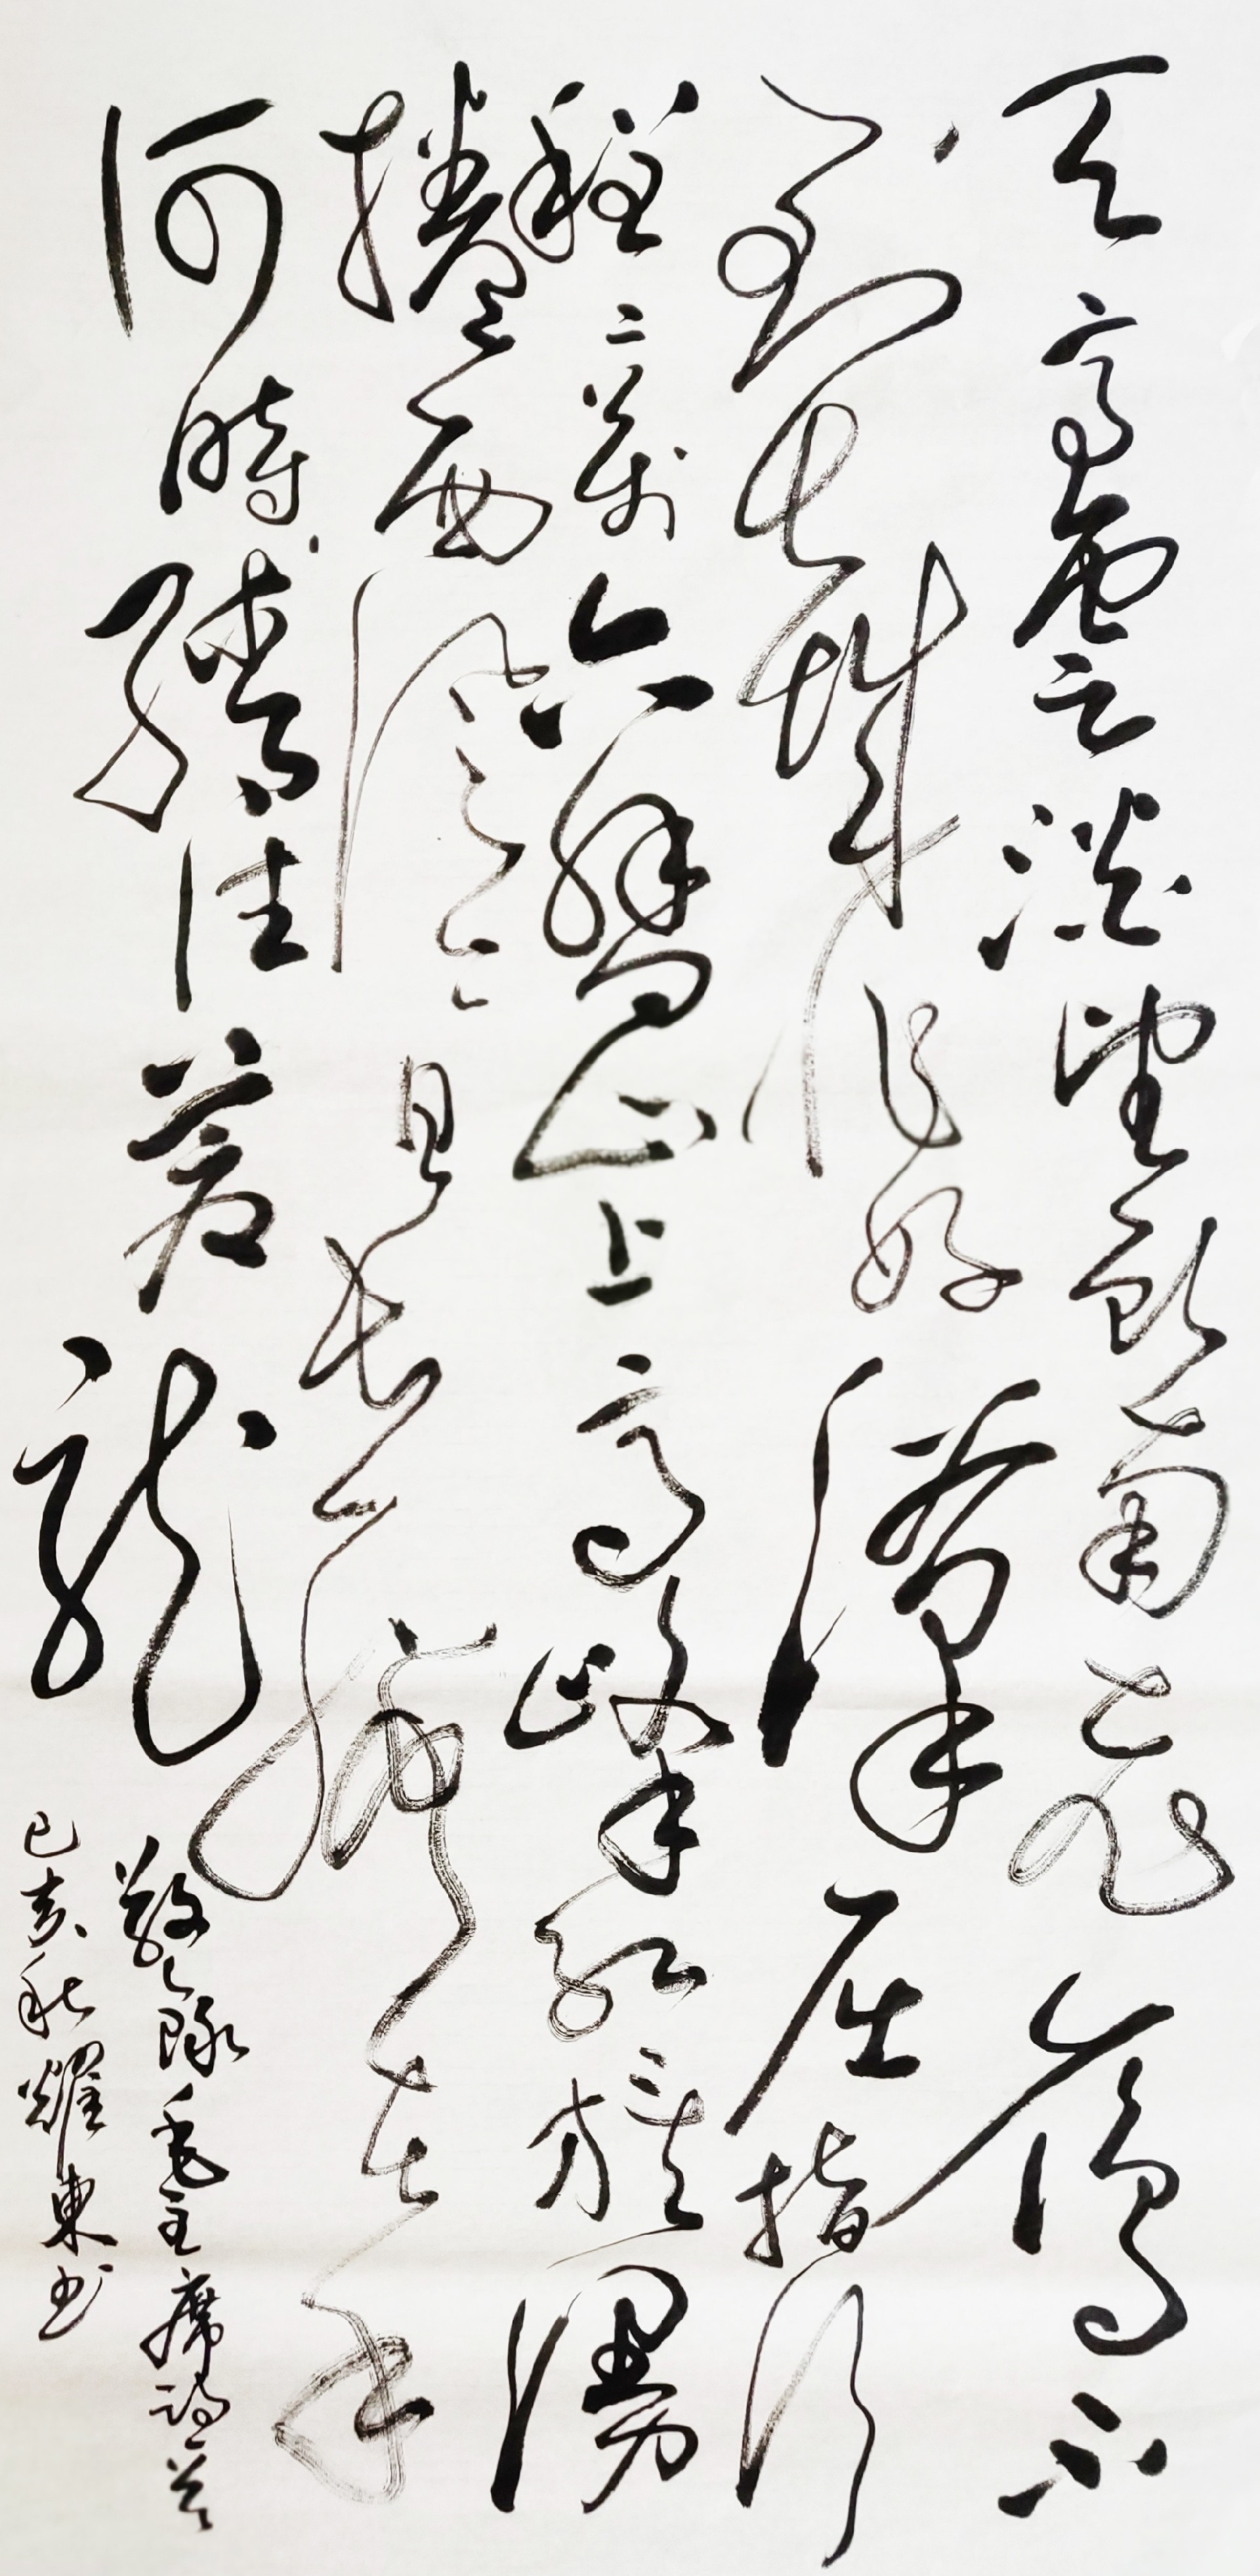 天高雲淡望斷南飛雁不
到長城非好漢屈指行
程二萬六盤山上高峰紅旗漫
捲西風今日長纓在手
何時縛住蒼龍
敬錄毛主席詩一首
己亥秋耀東書